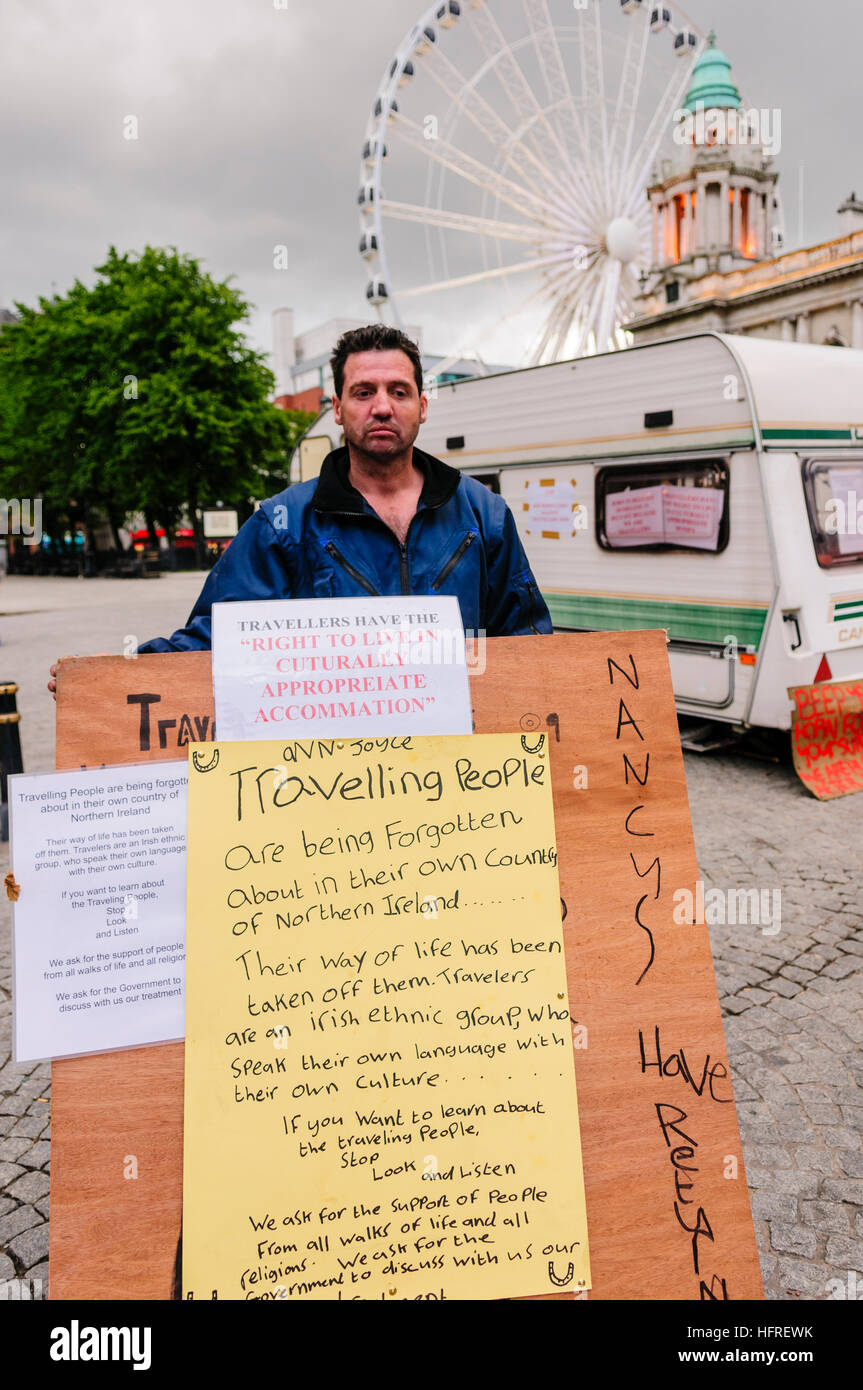 TRAVELLERS HAVE THE
“RIGHT TO LIVE IN
CUTURALLY
APPROPREIATE
ACCOMMATION”
Trav
ANN JOYCE
Travelling People
are being Forgotten
about in their own Country
of Northern Ireland.......
Their way of life has been
taken off them. Travelers
are an irish ethnic group, who
speak their own language with
their own culture........
If you want to learn about
the traveling People,
Stop
Look and Listen
We ask for the support of People
From all walks of life and all
religions. We ask for the
Government to discuss with us our
Travelling People are being forgotten
about in their own country of
Northern Ireland
Their way of life has been taken
off them. Travelers are an Irish ethnic
group, who speak their own language
with their own culture.
If you want to learn about
the Traveling People,
Stop
Look
and Listen
We ask for the support of people
from all walks of life and all religion
We ask for the Government to
discuss with us our treatment
NANCYS
Have
BEEP
HORN FOR
YOUR SU
alamy stock photo
a
alamy
Image ID: HFREWK
www.alamy.com